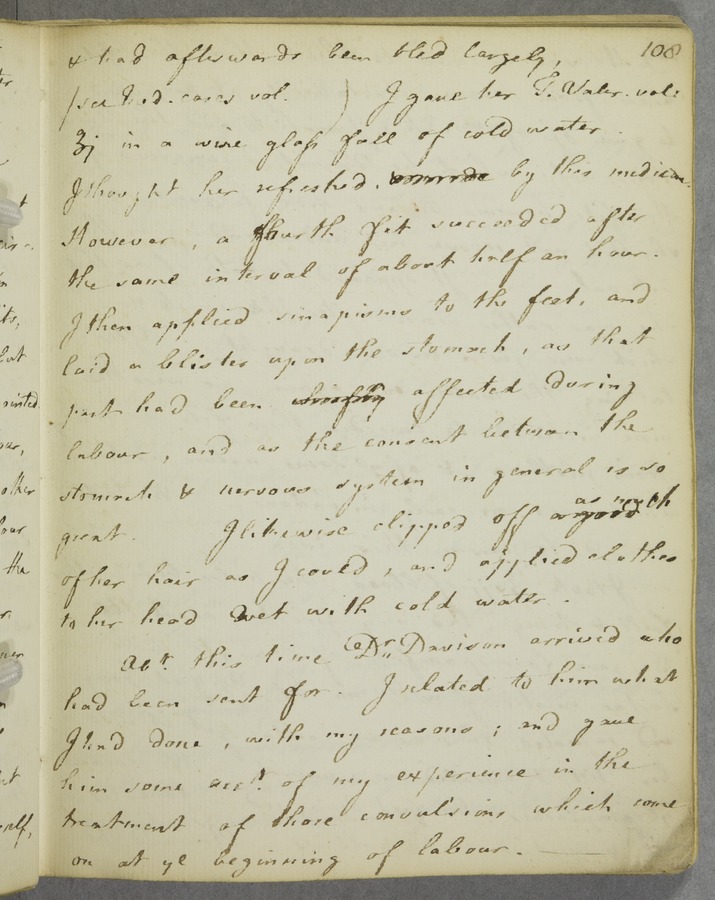 108
& had afterwards been bled largely,
(see Med. cases vol. ) I gave her T. Valer. vol:
ʒj in a wine glass full of cold water.
I thought her refreshed by this medicine.
However, a fourth fit succeeded after
the same interval of about half an hour.
I then applied sinapisms to the feet, and
laid a blister upon the stomach, as that
part had been chiefly affected during
labour, and as the consent between the
stomach & nervous system in general is so
great. I likewise clipped off as much
of her hair as I could, and applied clothes
to her head wet with cold water.
Abt. this time Dr. Davison arrived who
had been sent for. I related to him what
I had done, with my reasons; and gave
him some acct. of my experience in the
treatment of those convulsions which come
on at ye beginning of labour.